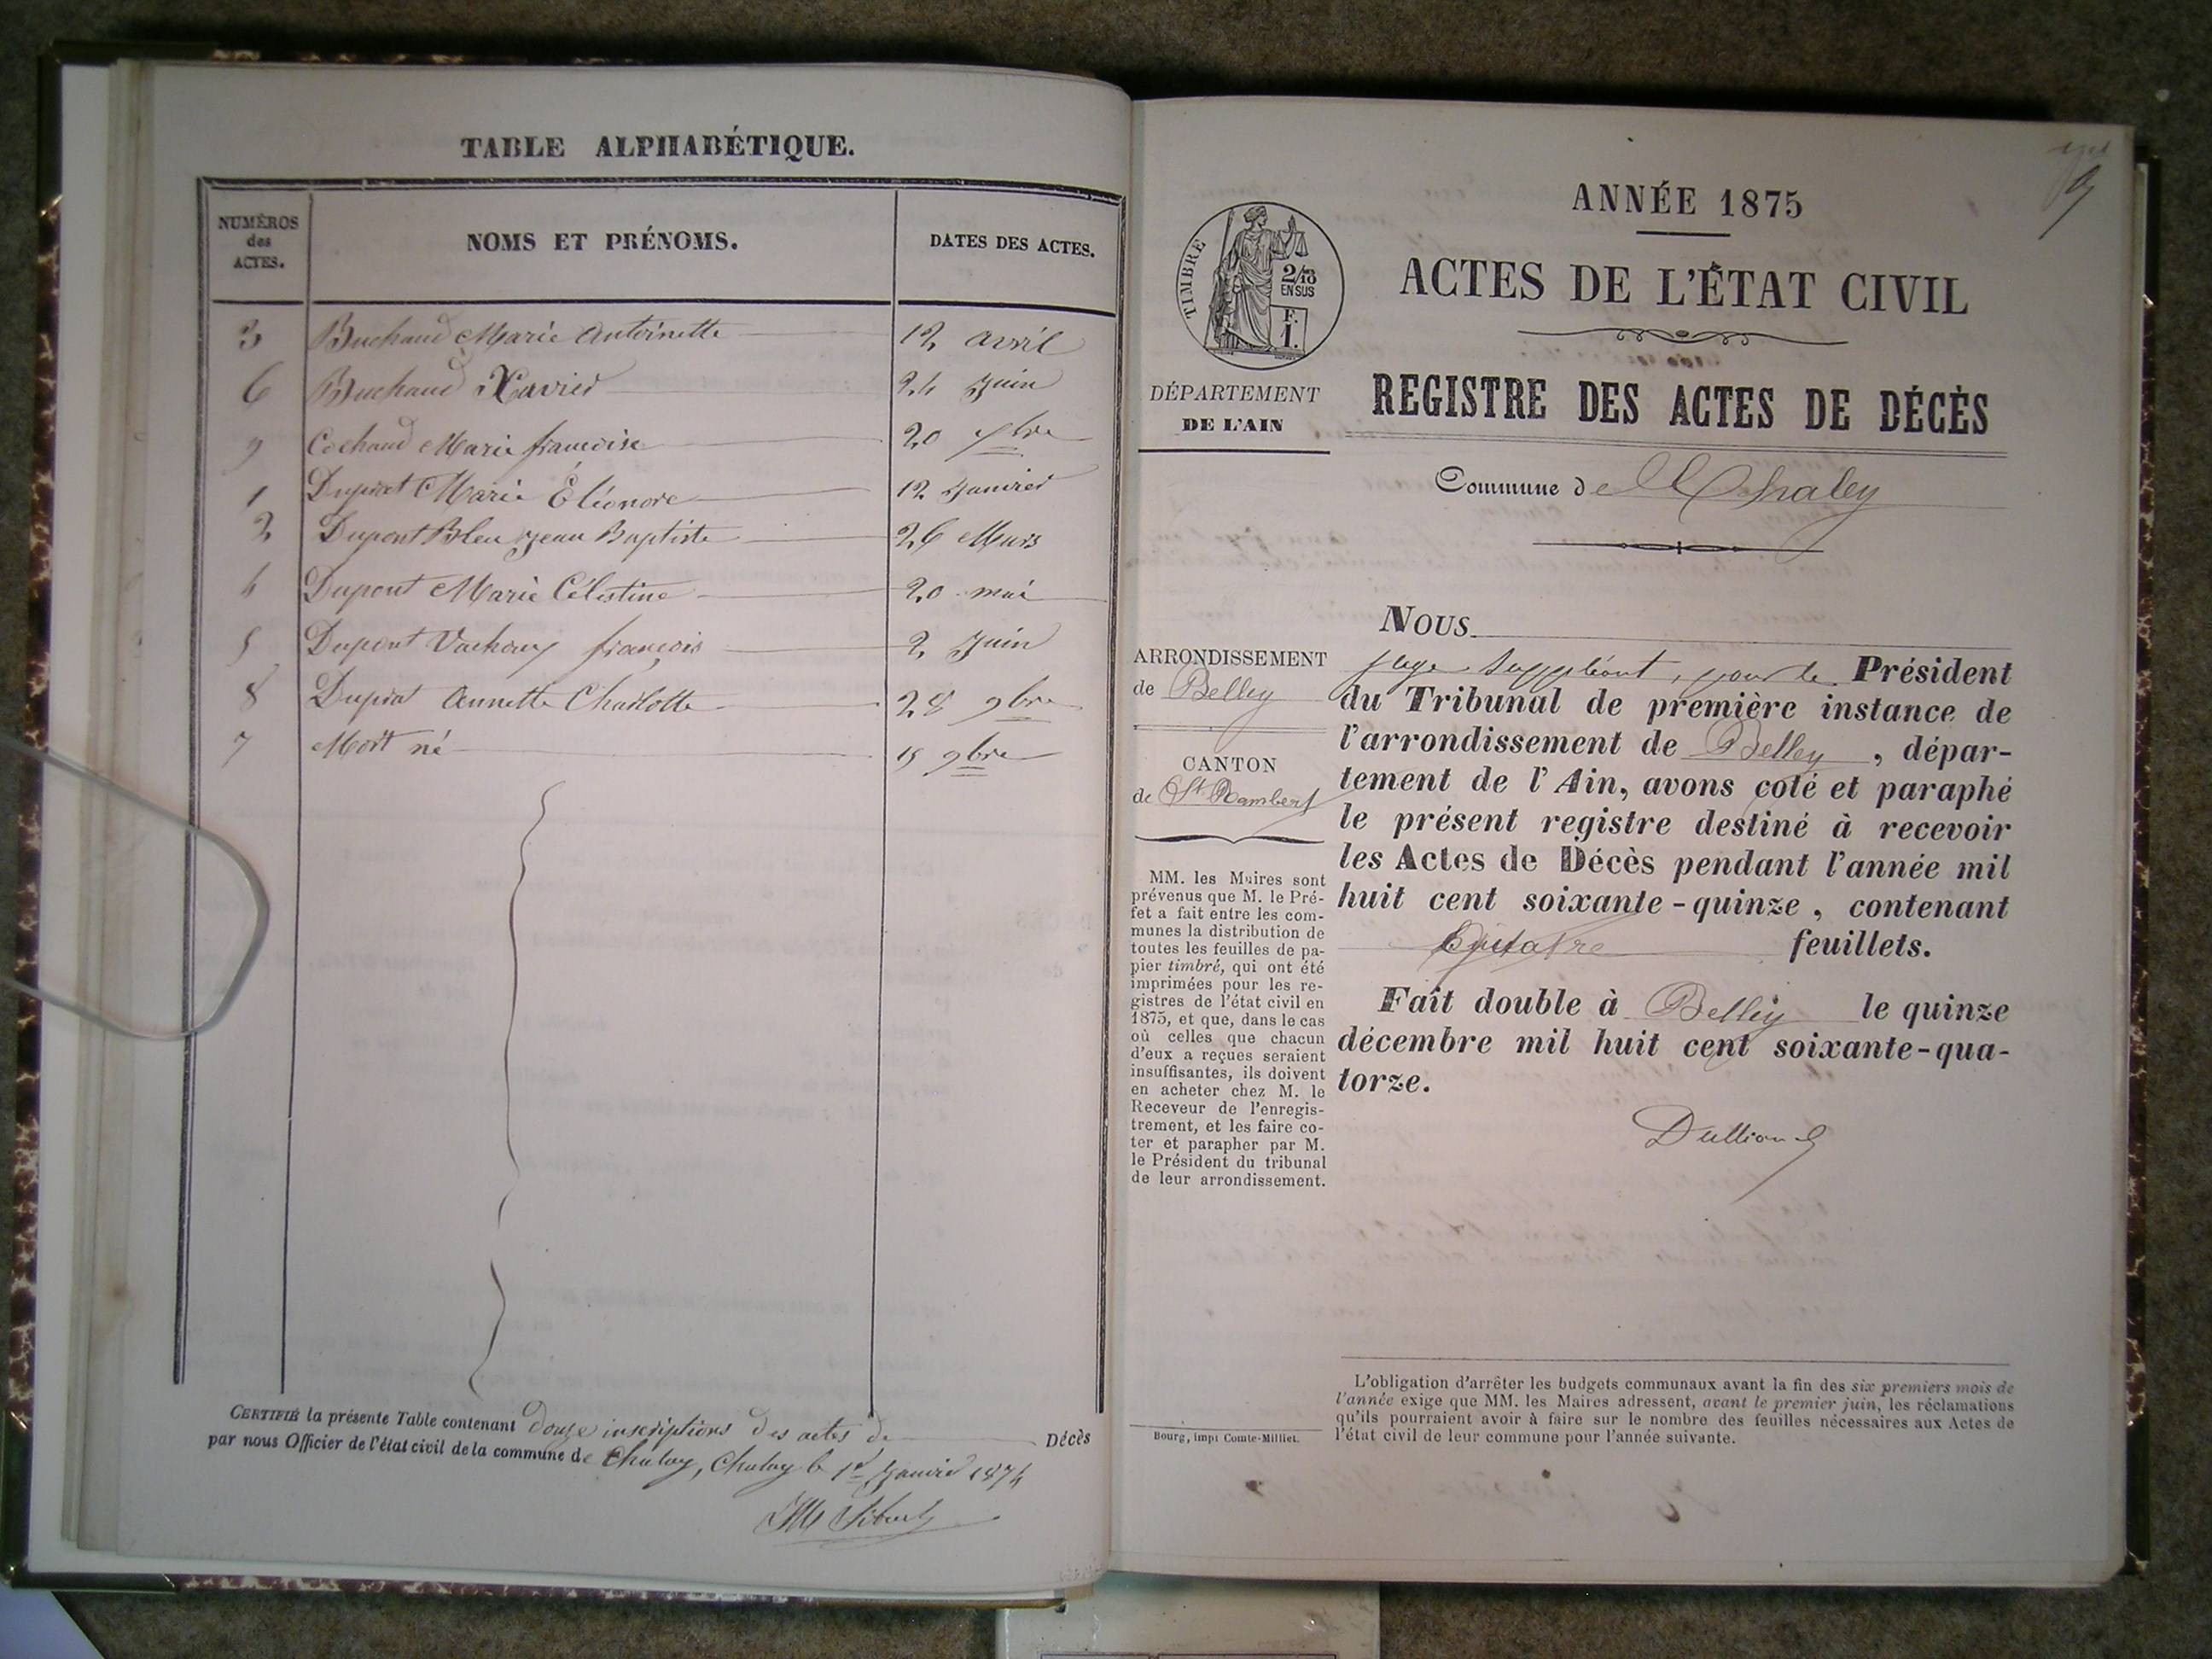 TABLE ALPHABÉTIQUE.
NUMÉROS des ACTES. NOMS ET PRÉNOMS. DATES DES ACTES.
3 Buchaud Marie Antoinette 12 avril
6 Buchaud Xavier 24 Juin
9 Cochaud Marie françoise 20 bre
1 Marie Éléonore 12 Janvier
2 Dupont Bleu Jean Baptiste 26 Mars
4 Dupont Marie Célestine 20 mai
5 Dupont françois 2 Juin
8 Annette Charlotte 28 9bre
7 Mort né 15 9bre
CERTIFIÉ la présente Table contenant douze inscriptions des actes de Décès
par nous Officier de l'état civil de la commune de Chaley, Chaley le 1er Janvier 1874
ANNÉE 1875
TIMBRE
2/10
EN SUS
F.
1.
ACTES DE L'ÉTAT CIVIL
DÉPARTEMENT
DE L'AIN
REGISTRE DES ACTES DE DÉCÈS
Commune de Chaley
ARRONDISSEMENT
de Belley
CANTON
de St Rambert
MM. les Maires sont
prévenus que M. le Pré-
fet a fait entre les com-
munes la distribution de
toutes les feuilles de pa-
pier timbré, qui ont été
imprimées pour les re-
gistres de l'état civil en
1875, et que, dans le cas
où celles que chacun
d'eux a reçues seraient
insuffisantes, ils doivent
en acheter chez M. le
Receveur de l'enregis-
trement, et les faire co-
ter et parapher par M.
le Président du tribunal
de leur arrondissement.
Bourg, impr Comte-Milliet.
NOUS
juge suppléant, pour le Président
du Tribunal de première instance de
l'arrondissement de Belley, dépar-
tement de l'Ain, avons coté et paraphé
le présent registre destiné à recevoir
les Actes de Décès pendant l'année mil
huit cent soixante-quinze, contenant
Quatre feuillets.
Fait double à Belley le quinze
décembre mil huit cent soixante-qua-
torze.
L'obligation d'arrêter les budgets communaux avant la fin des six premiers mois de
l'année exige que MM. les Maires adressent, avant le premier juin, les réclamations
qu'ils pourraient avoir à faire sur le nombre des feuilles nécessaires aux Actes de
l'état civil de leur commune pour l'année suivante.